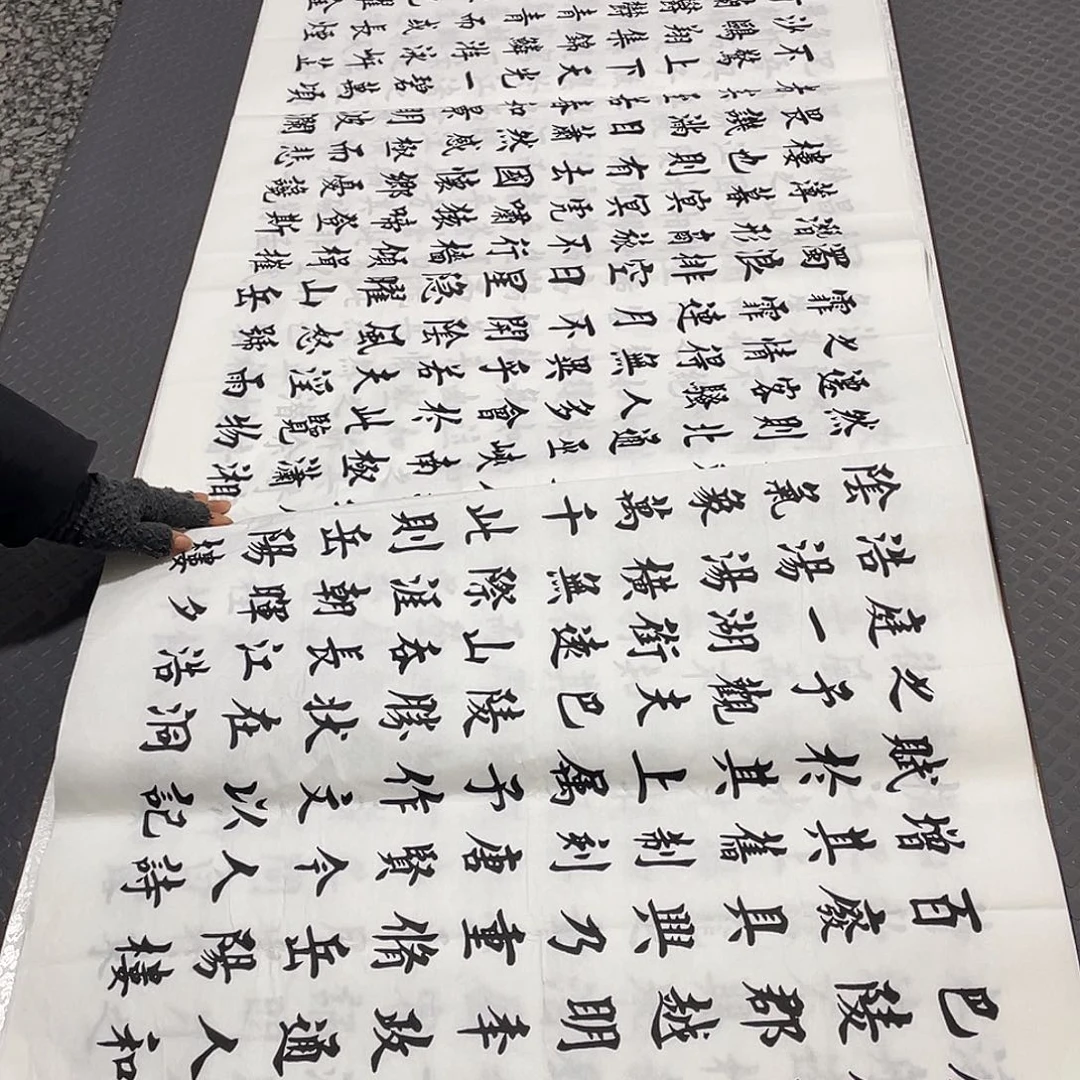 巴陵郡越明年政通人和
百廢具興乃重脩岳陽樓
增其舊制刻唐賢今人詩
賦於其上屬予作文以記
之予觀夫巴陵勝狀在洞
庭一湖銜遠山吞長江浩
浩湯湯橫無際涯朝暉夕
陰氣象萬千此則岳陽樓
然則北通巫峽南極瀟湘
遷客騷人多會於此覽物
之情得無異乎若夫淫雨
霏霏連月不開陰風怒號
濁浪排空日星隱曜山岳
潛形商旅不行檣傾楫摧
薄暮冥冥虎嘯猿啼登斯
樓也則有去國懷鄉憂讒
畏譏滿目蕭然感極而悲
者矣至若春和景明波瀾
不驚上下天光一碧萬頃
沙鷗翔集錦鱗游泳岸芷
蘭欝欝青青而或長煙